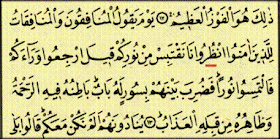 ذَٰلِكَ هُوَ الْفَوْزُ الْعَظِيمُ ۝١٢ يَوْمَ يَقُولُ الْمُنَافِقُونَ وَالْمُنَافِقَاتُ
لِلَّذِينَ آمَنُوا انْظُرُونَا نَقْتَبِسْ مِنْ نُورِكُمْ قِيلَ ارْجِعُوا وَرَاءَكُمْ
فَالْتَمِسُوا نُورًا فَضُرِبَ بَيْنَهُمْ بِسُورٍ لَهُ بَابٌ بَاطِنُهُ فِيهِ الرَّحْمَةُ
وَظَاهِرُهُ مِنْ قِبَلِهِ الْعَذَابُ ۝١٣ يُنَادُونَهُمْ أَلَمْ نَكُنْ مَعَكُمْ قَالُوا بَلَىٰ